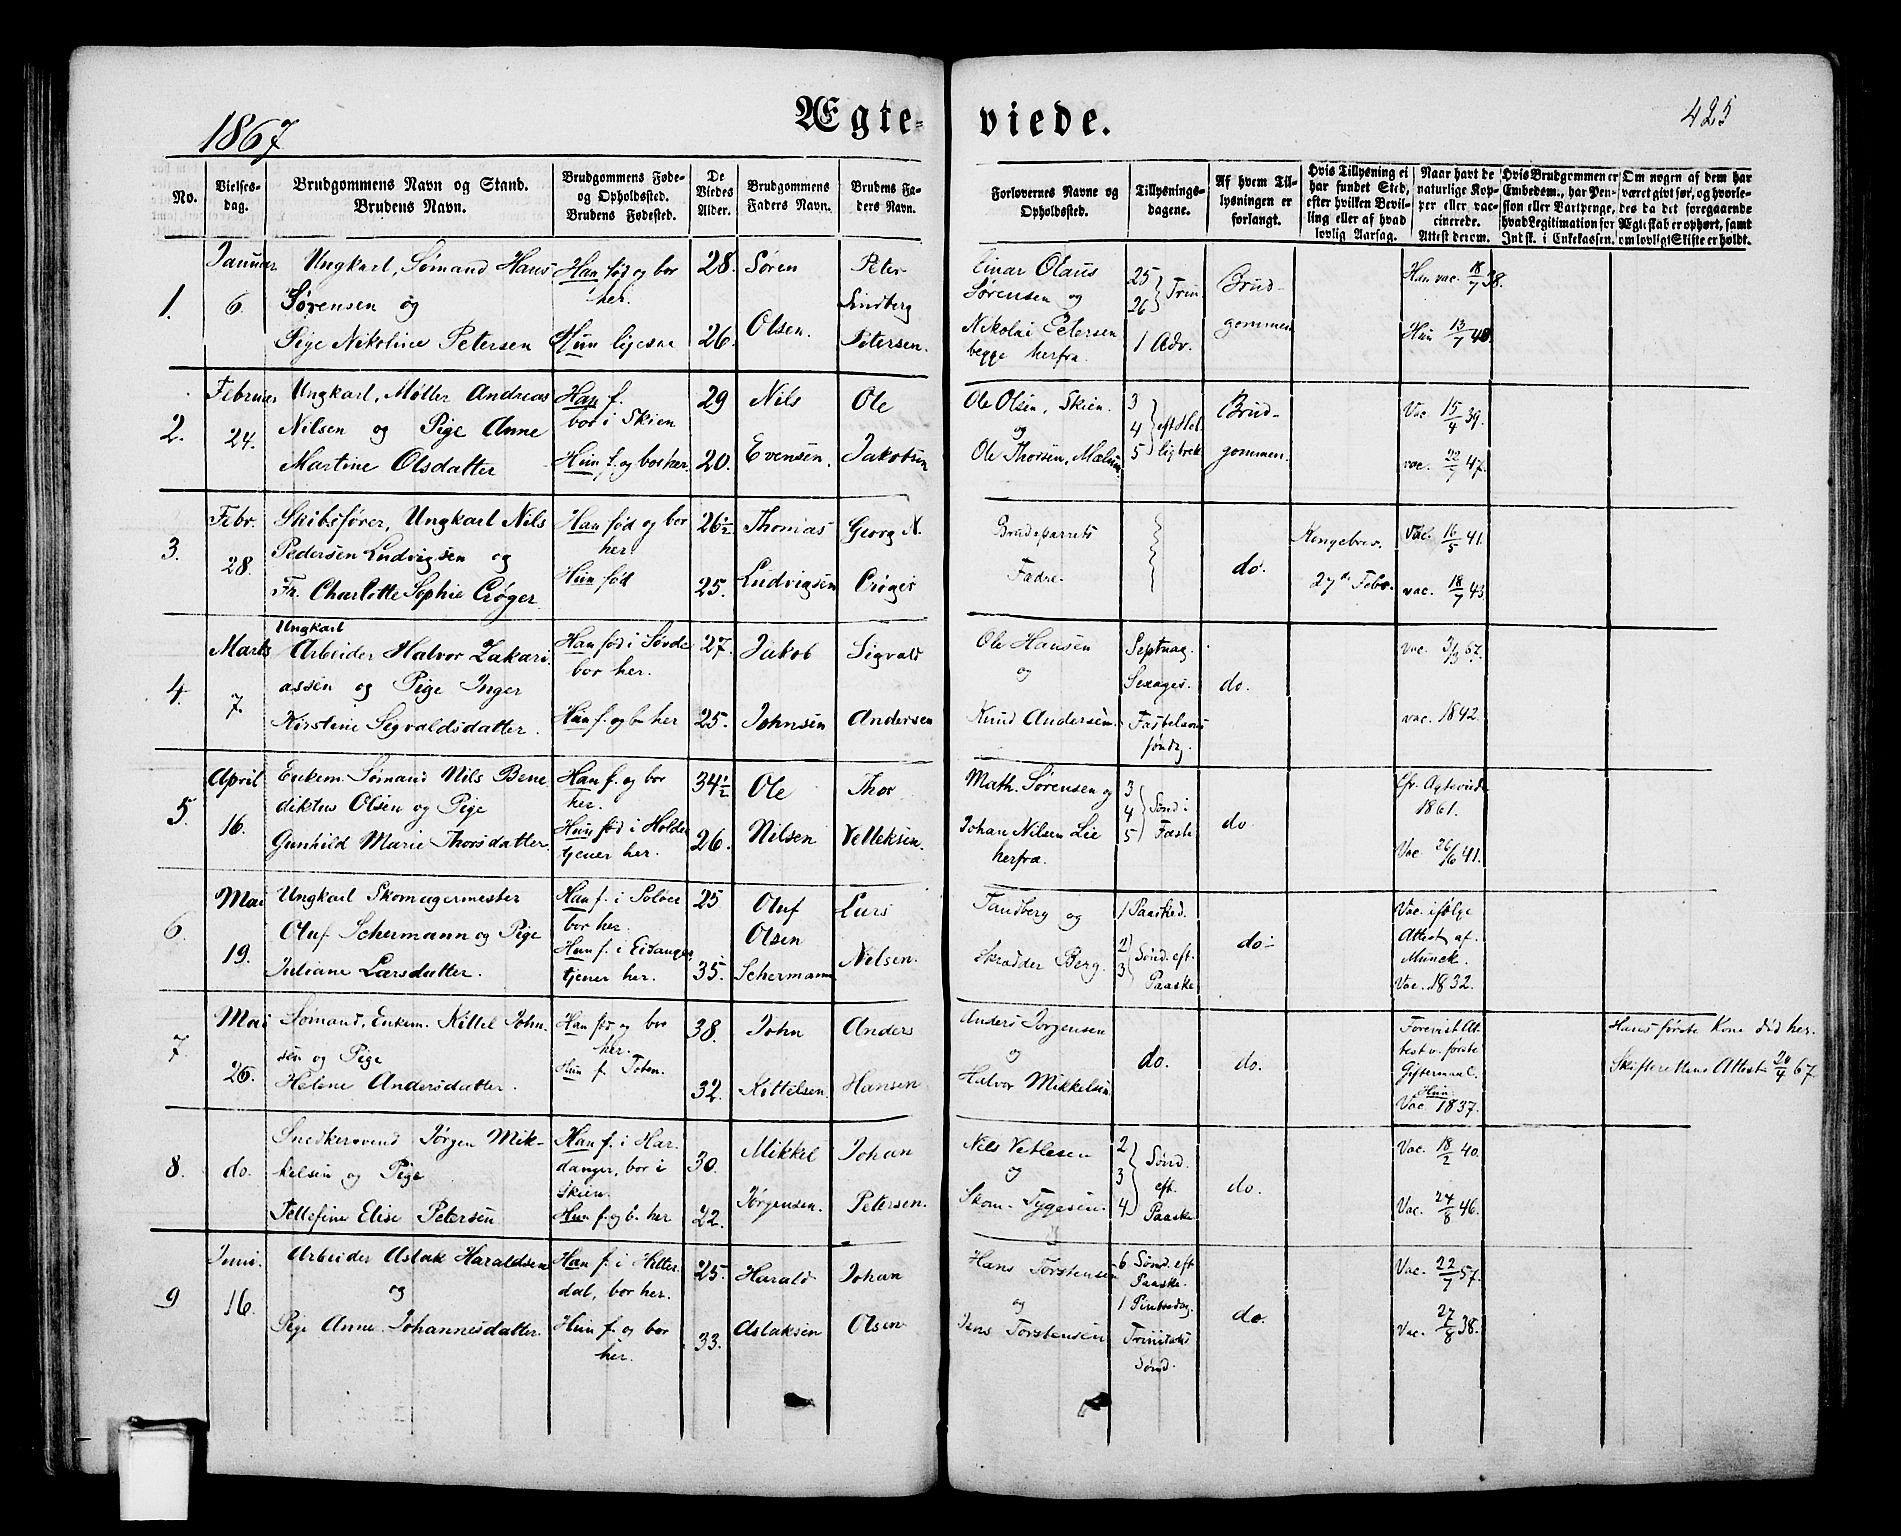 1867
Ægte-
viede.
425
No.
Vielses-
dag.
Brudgommens Navn og Stand.
Brudens Navn.
Brudgommens Føde-
og Opholdssted.
Brudens Fødested.
De
Viedes
Alder.
Brudgommens
Faders Navn.
Brudens Fa-
ders Navn.
Forlovernes Navne og
Opholdssted.
Tillysnings-
dagene.
Af hvem Til-
lysningen er
forlangt.
Hvis Tillysning ei
har fundet Sted,
efter hvilken Bevil-
ling eller af hvad
lovlig Aarsag.
Naar havt de
naturlige Kop-
per eller vac-
cinerede.
Attest derom.
Hvis Brudgommen er
Embedsm., har Pen-
sion eller Vartpenge,
hvad Legitimation for
Indsk. i Enkekassen.
Om nogen af dem har
været givt før, og hvorle-
des da det foregaaende
Ægteskab er ophørt, samt
om lovligt Skifte er holdt.
1.
Januar
6.
Ungkarl, Sømand Hans
Sørensen og
Pige Nikoline Petersen
Han fød og bor
her.
Hun ligesaa
28.
26.
Søren
Olsen.
Peter
Lindberg
Petersen.
Einar Olaus
Sørensen og
Nikolai Petersen
begge herfra.
25
26 } Trin.
1 Adv.
Brud-
gommen
Han vac. 18/7 38.
Hun 13/7 40.
2.
Februar
24.
Ungkarl, Møller Andreas
Nilsen og Pige Anne
Martine Olsdatter
Han f.
bor i Skien
Hun f. og bor her.
29
20.
Nils
Evensen.
Ole
Jakobsen
Ole Olsen, Skien.
og
Ole Thorsen, Mælum
3
4 } eft Hel
5 ligtrek
Brud-
gommen.
Vac. 15/4 39.
vac. 22/7 47.
3.
Febr.
28.
Skibsfører, Ungkarl Nils
Pedersen Ludvigsen og
Fr. Charlotte Sophie Crøger
Han fød og bor
her
Hun fød
26 1/2
25.
Thomas
Ludvigsen
Georg A.
Crøger
Brudeparrets
Fædre
do.
Kongebrev.
27de Febr.
Vac. 16/5 41.
vac. 18/7 43.
4.
Marts
7.
Ungkarl
Arbeider Halvor Zakari
assen og Pige Inger
Kirstine Sigvaldsdatter.
Han fød i Søvde
bor her.
Hun f. og b. her
27.
25.
Jakob
Johnsen
Sigvald
Andersen
Ole Hansen
og
Knud Andersen.
Septuag.
Sexages.
Fastelavns
søndg.
do.
vac. 3/3 67.
vac. 1842.
5.
April
16.
Enkem. Sømand Nils Bene
diktus Olsen og Pige
Gunhild Marie Thorsdatter.
Han f. og bor
her.
Hun fød i Holden
tjener her.
34 1/2
26.
Ole
Nilsen
Thor
Vetleksen.
Math. Sørensen og
Johan Nilsen Lie
herfra.
3
4 } Sønd i
5 Faste
do
Cfr. Ægteviede
1861.
Vac 26/6 41.
6.
Mai
19.
Ungkarl Skomagermester
Oluf Schermann og Pige
Juliane Larsdatter.
Han f. i Soløer
bor her.
Hun f. i Eidanger
tjener her.
25
35.
Oluf
Olsen
Schermann
Lars
Nelsen.
Tandberg og
Skrædder Berg.
1 Paasked.
2 } Sønd. eft.
3 Paaske
do.
Vac. ifølge
Attest af.
Munck.
Vac. 1832.
7.
Mai
26.
Sømand, Enkem. Kittel John-
sen og Pige
Helene Andersdatter.
Han fød og bor
her.
Hun f. Toten.
38.
32.
John
Kittelsen.
Anders
Hansen
Anders Jørgensen
og
Halvor Mikkelsen
do.
do.
Forevist At
test v. første
Giftermaal.
Hun
Vac 1837.
Hans første Kone død her.
Skifterettens Attest 20/4 67.
8.
do.
Snedkersvend Jørgen Mik-
kelsen og Pige
Tellefine Elise Petersen
Han f. i Har-
danger, bor i
Skien.
Hun f. og b. her
30.
22.
Mikkel
Jørgensen.
Johan
Petersen.
Nils Vetlesen
og
Skom. Tygesen.
2
3 } Sønd.
4 eft.
Paaske
do.
Vac. 18/2 40.
Vac. 24/8 46.
9
Juni.
16.
Arbeider Aslak Haraldsen
og
Pige Anne Johannesdatter.
Han f. i Hitter
dal, bor her.
Hun f. og bor
her.
25.
33.
Harald
Aslaksen
Johan
Olsen
Hans Torstensen
og
Jens Torstensen
6 Sønd. eft
Paaske.
1 Pintsedag.
Trinitatis
Sønd.
do.
Vac. 22/7 57.
Vac. 27/8 38.